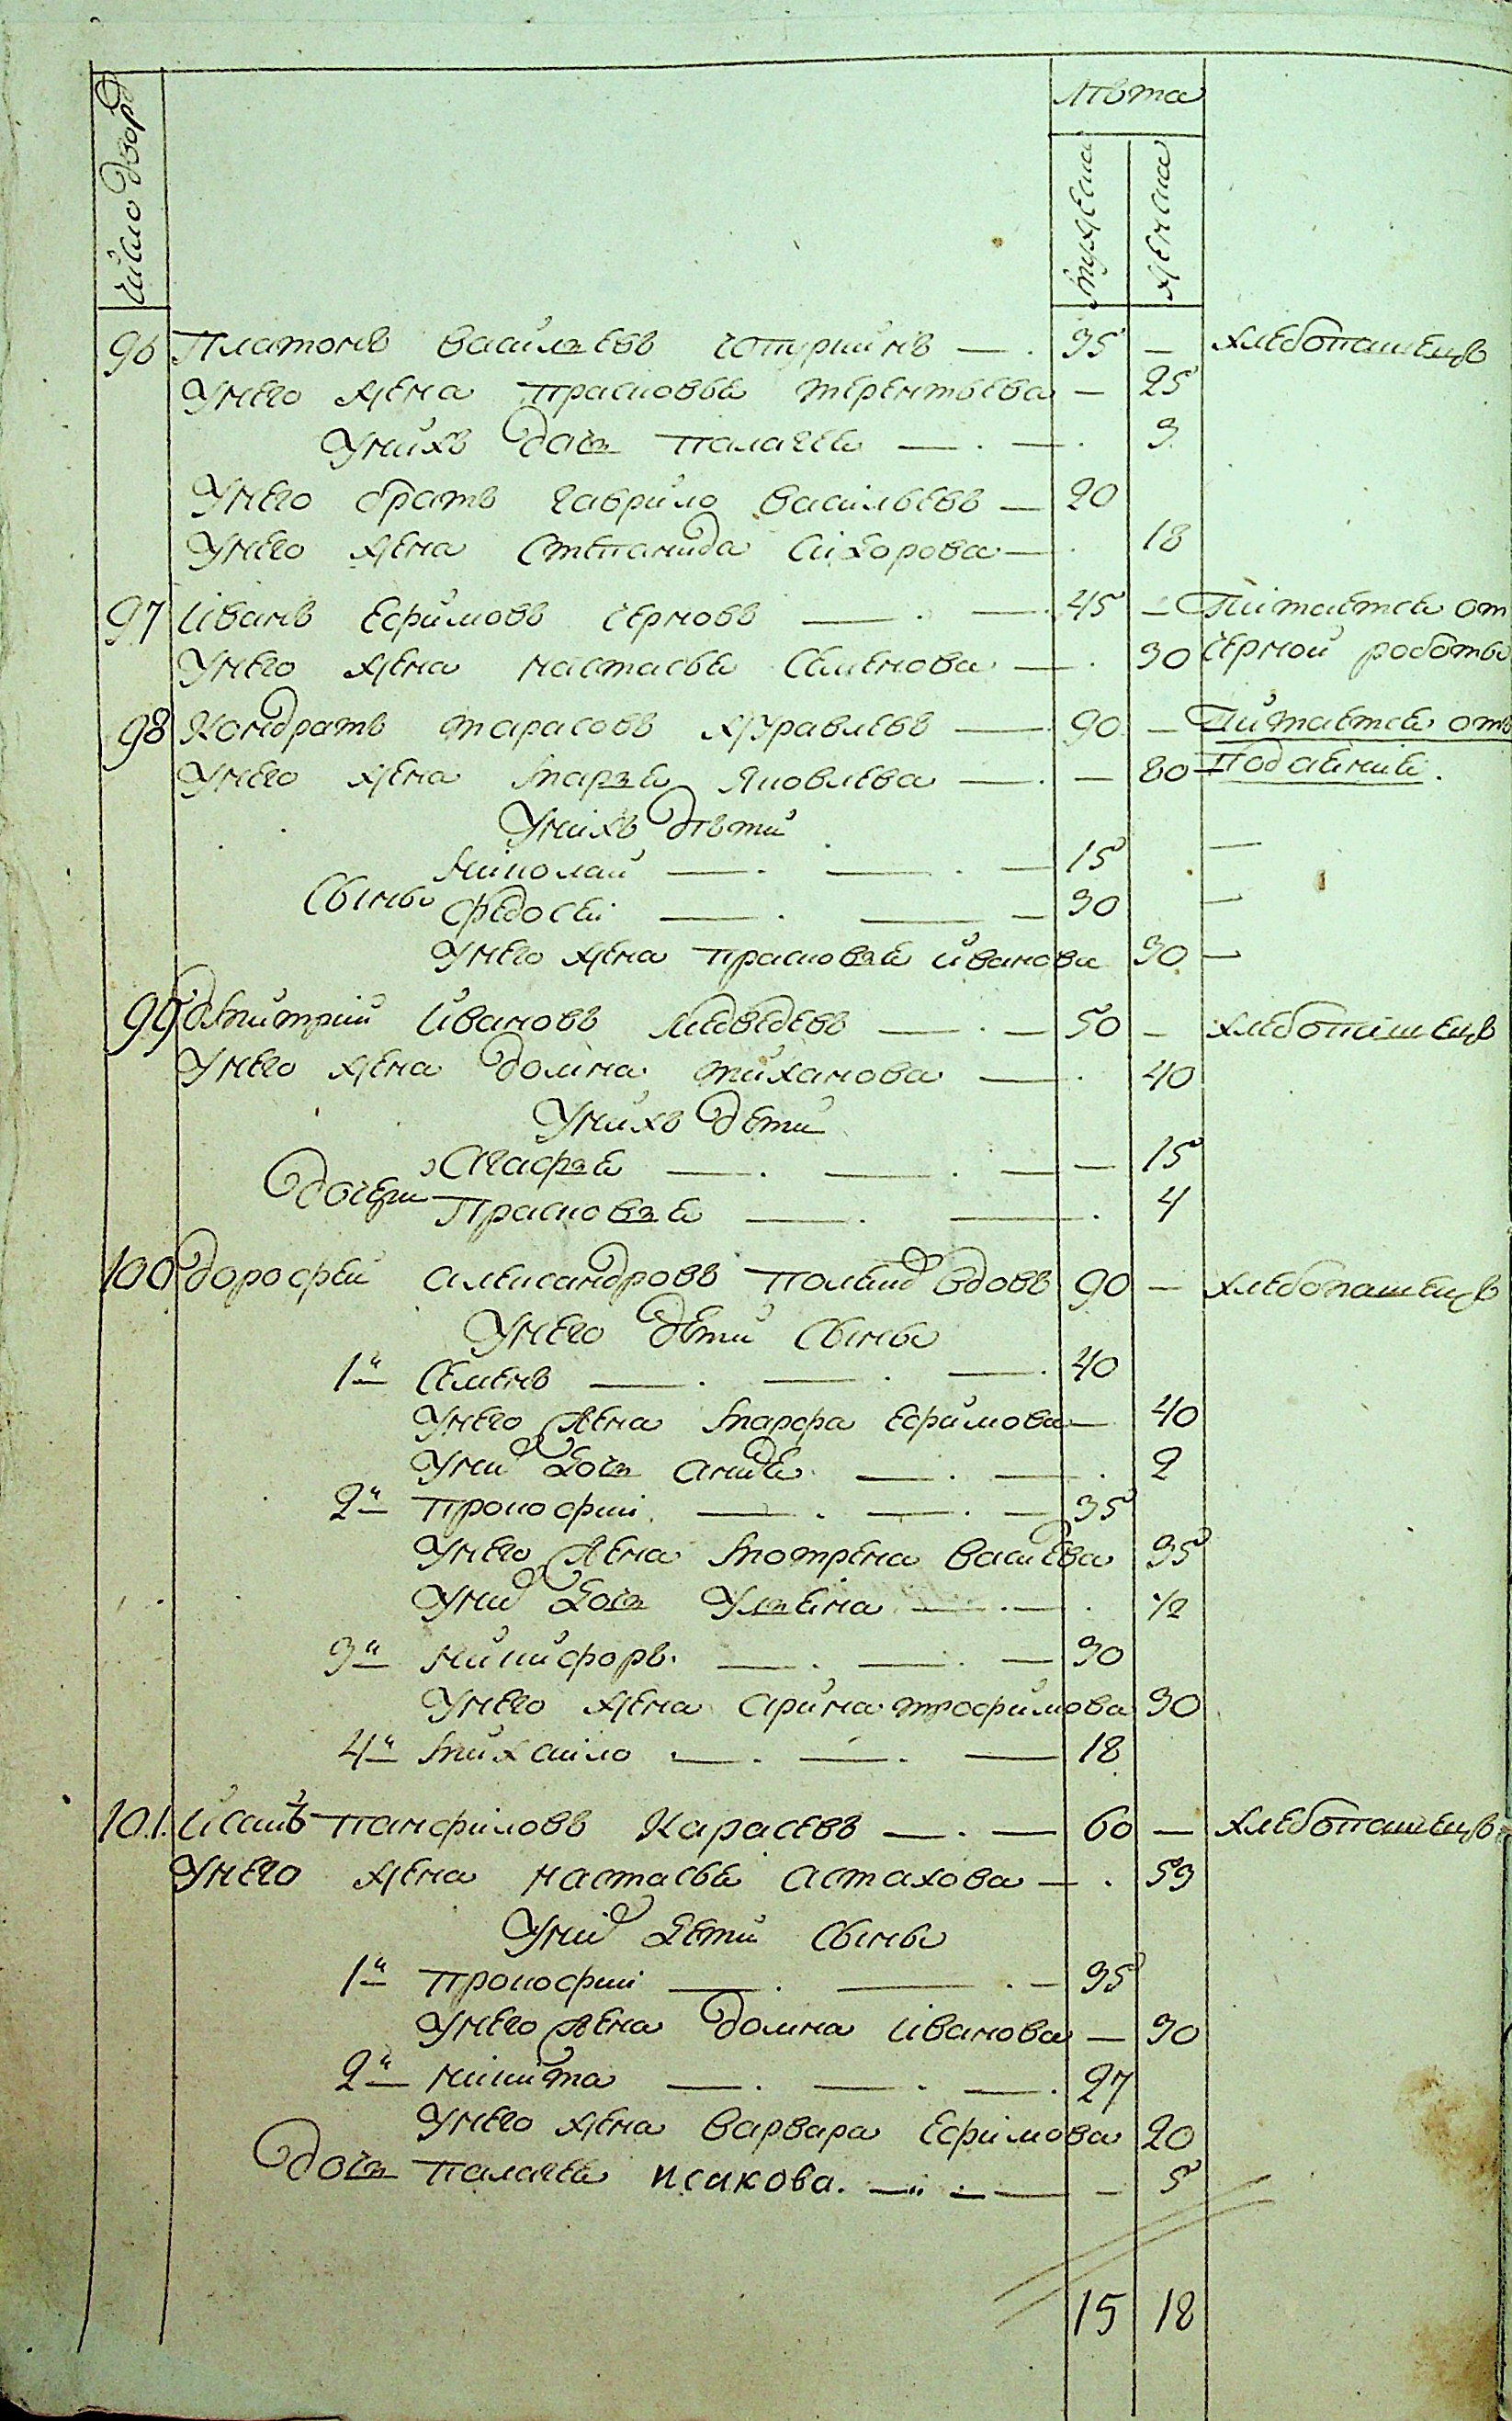 Число дворъ
Лѣта
мужеска
женска
96 Платонъ Васильевъ Чотуринъ — 35 — Хлебопашецъ
Унего жена Прасковья Терентьева — 25
Унихъ дочь Палагея — 3
Унего братъ Гаврило Васильевъ — 20
Унего жена Степанида Сидорова — 18
97 Иванъ Ефимовъ Черновъ — 45 — Питается от
Унего жена Настасья Семенова — 30 черной работы
98 Кондратъ Тарасовъ Журавлевъ — 90 — Питается отъ
Унего жена Марья Яковлева — 80 — Подаянiя.
Унихъ дѣти
Николай — 15 —
Сыны Федосей — 30 —
Унего жена Прасковья Иванова 30 —
99 Дмитрий Ивановъ Медведевъ — 50 — Хлебопашецъ
Унего жена Домна Тиханова — 40
Унихъ дети
Агафья — 15
Дочери Прасковья — 4
100 Дорофей Александровъ вдовъ 90 — Хлебопашецъ
Унего дети сыны
1й Семенъ — 40
Унего жена Марфа Ефимова — 40
Уних дочь — 2
2й Прокофий — 35
Унего жена Мотрена 35
Уних дочь Ульяна — 1/2
3й Никифоръ. — 30
Унего жена Арина Трофимова 30
4й Михайло — 18
101. Исай Панфиловъ Карасевъ — 60 — Хлебопашецъ
Унего жена Настасья Астахова — 53
Уних дети сыны
1й Прокофий — 35
Унего жена Домна Иванова — 30
2й Никита — 27
Унего жена Варвара Ефимова 20
Дочь Палагея Исакова. — 5
15 18